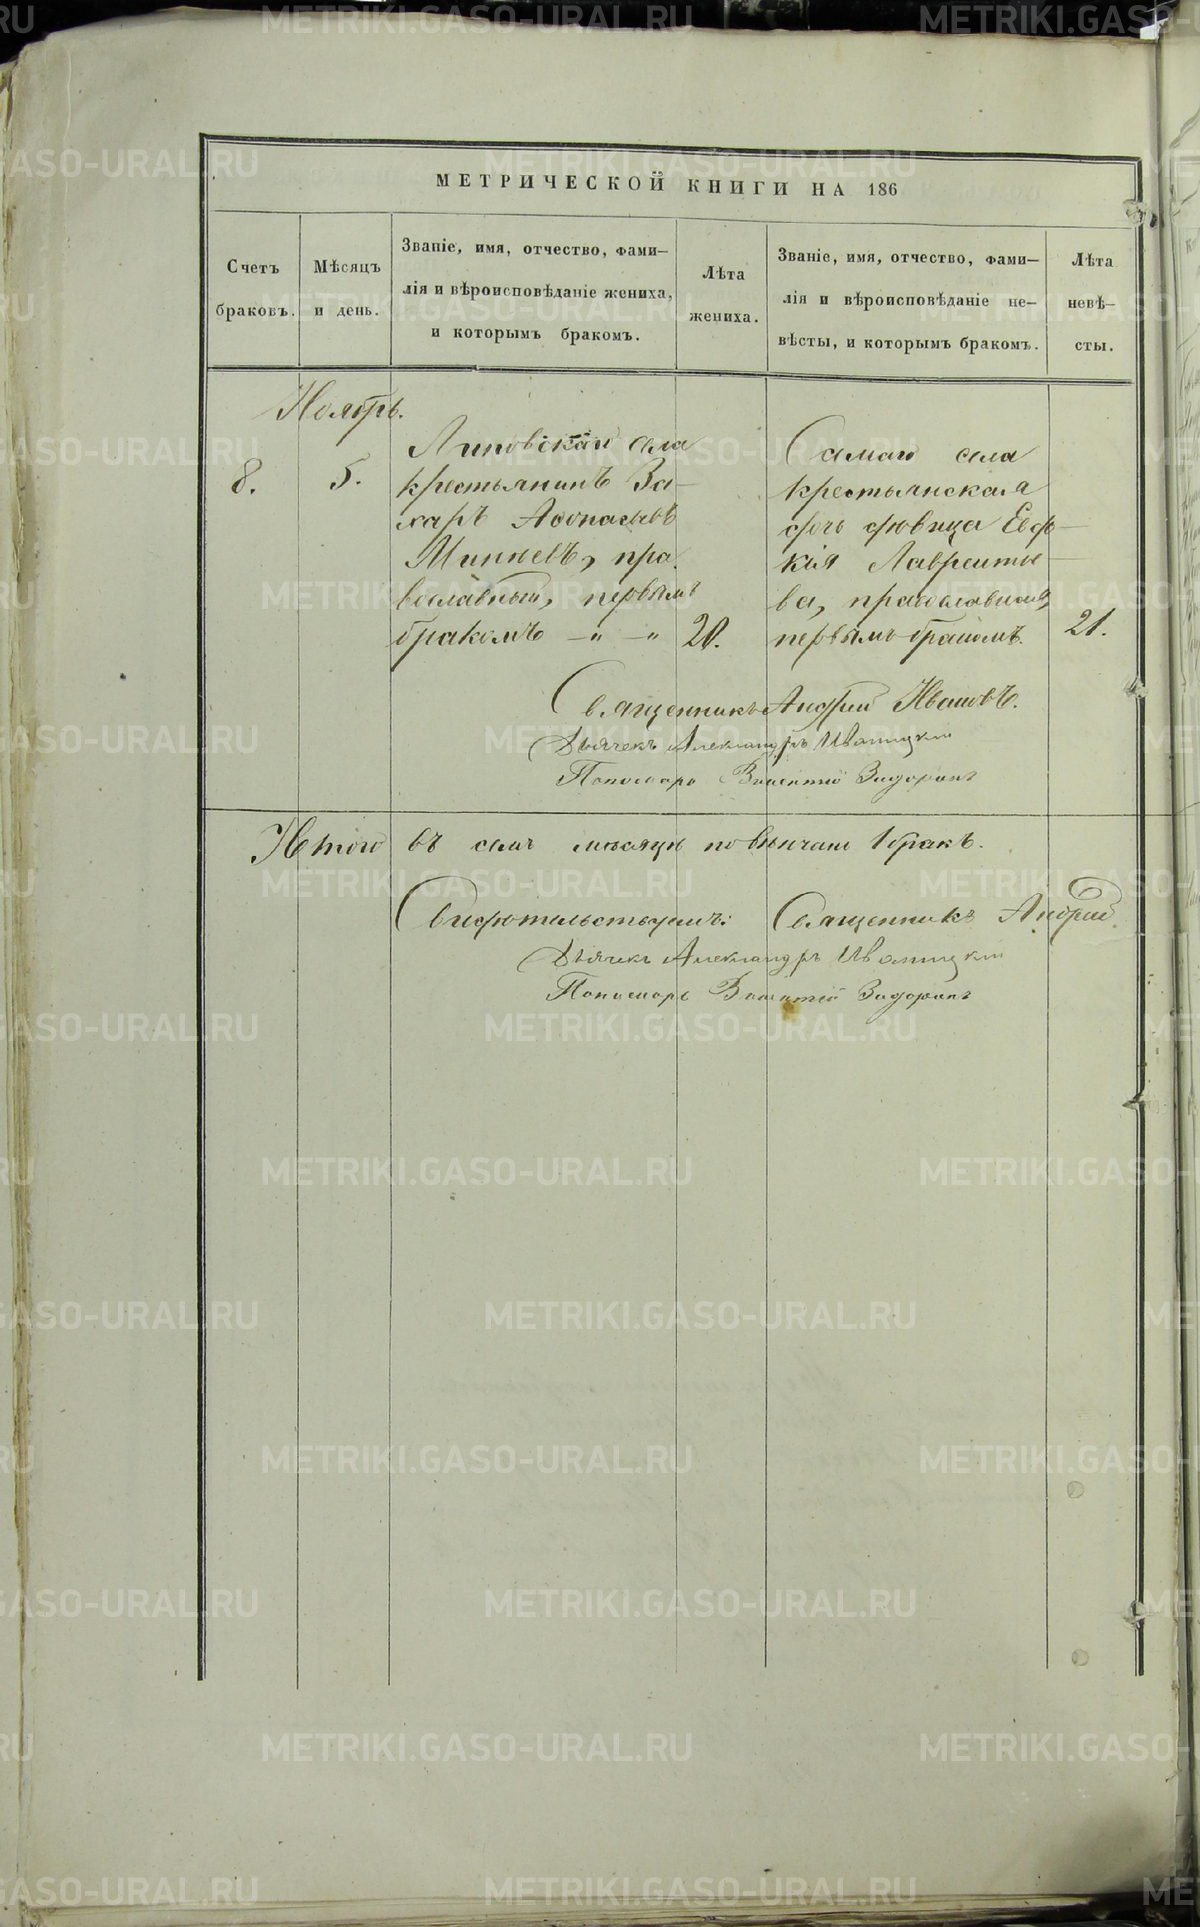 МЕТРИЧЕСКОЙ КНИГИ НА 186
Счетъ браковъ.
Мѣсяцъ и день.
Званіе, имя, отчество, фами-
лія и вѣроисповѣданіе жениха,
и которымъ бракомъ.
Лѣта жениха.
Званіе, имя, отчество, фами-
лія и вѣроисповѣданіе не-
вѣсты, и которымъ бракомъ.
Лѣта невѣ-
сты.
Ноябрь.
8.
5.
Липовскаго села
крестьянинъ За-
харъ Аѳонасьевъ
Минѣевъ, пра-
вославный, первымъ
бракомъ —"—"
20.
Самаго села
крестьянская
дочь дѣвица Евдо-
кія Лаврентье-
ва, православная,
первымъ бракомъ.
21.
Священникъ Андрей Ивановъ.
Дьячекъ Александръ Иваницкій
Пономарь Викентій Задоринъ
Итого въ семъ мѣсяцѣ повѣнчанъ 1 бракъ.
Свидѣтельствуемъ: Священникъ Андрей
Дьячекъ Александръ Иваницкій
Пономарь Викентій Задоринъ
METRIKI.GASO-URAL.RU